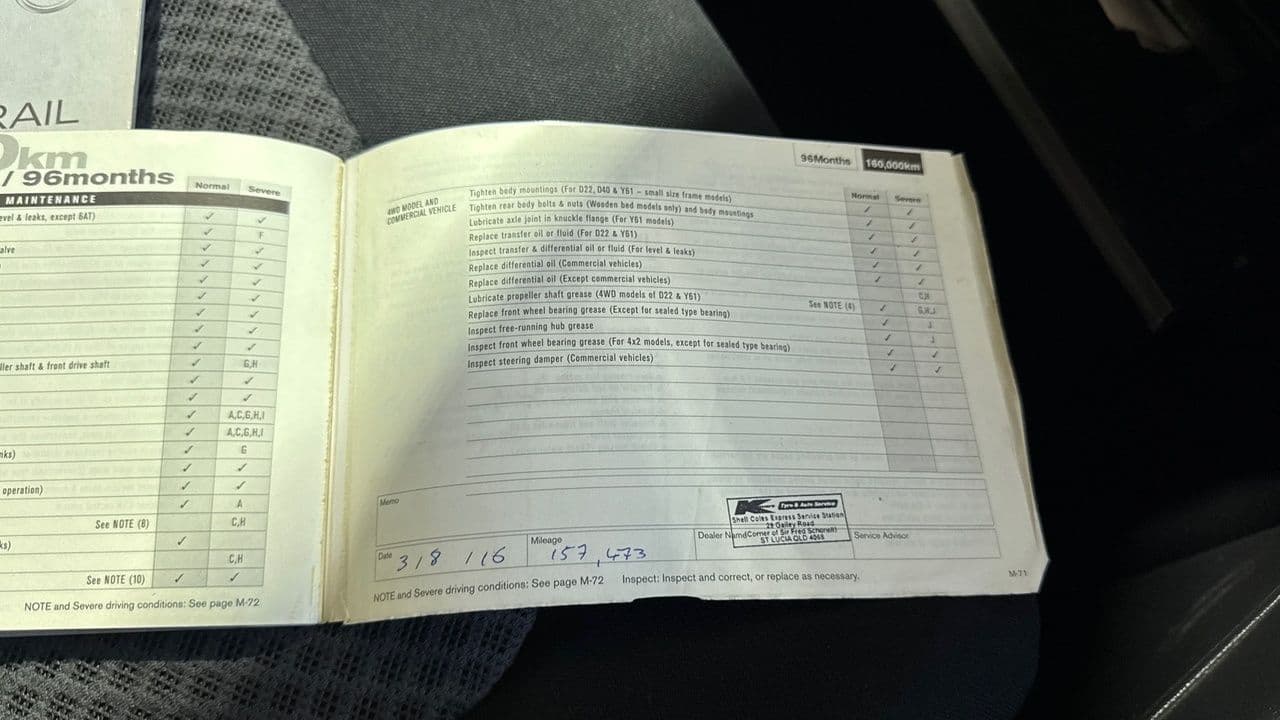 RAIL
km
/ 96months
Normal Severe
MAINTENANCE
evel & leaks, except 6AT) ✓ ✓
✓ F
alve ✓ ✓
✓ ✓
✓ ✓
✓ ✓
✓ ✓
✓ ✓
✓ ✓
ller shaft & front drive shaft ✓ G,H
✓ ✓
✓ ✓
✓ A,C,G,H,I
✓ A,C,G,H,I
nks) ✓ G
✓ ✓
operation) ✓ ✓
✓ A
See NOTE (8) C,H
ks) ✓
C,H
See NOTE (10) ✓ ✓
NOTE and Severe driving conditions: See page M-72
96Months 160,000km
Normal Severe
4WD MODEL AND
COMMERCIAL VEHICLE
Tighten body mountings (For D22, D40 & Y61 - small size frame models) ✓ ✓
Tighten rear body bolts & nuts (Wooden bed models only) and body mountings ✓ ✓
Lubricate axle joint in knuckle flange (For Y61 models) ✓ ✓
Replace transfer oil or fluid (For D22 & Y61) ✓ ✓
Inspect transfer & differential oil or fluid (For level & leaks) ✓ ✓
Replace differential oil (Commercial vehicles) ✓ ✓
Replace differential oil (Except commercial vehicles) C,H
Lubricate propeller shaft grease (4WD models of D22 & Y61) See NOTE (4) ✓ G,H,J
Replace front wheel bearing grease (Except for sealed type bearing) ✓ J
Inspect free-running hub grease ✓ J
Inspect front wheel bearing grease (For 4x2 models, except for sealed type bearing) ✓ ✓
Inspect steering damper (Commercial vehicles) ✓ ✓
Memo
K Tyre & Auto Service
Shell Coles Express Service Station
29 Gailey Road
(Corner of Sir Fred Schonell)
ST LUCIA QLD 4068
Date 3/8/16
Mileage 157,473
Dealer Name
Service Advisor
NOTE and Severe driving conditions: See page M-72 Inspect: Inspect and correct, or replace as necessary.
M-71